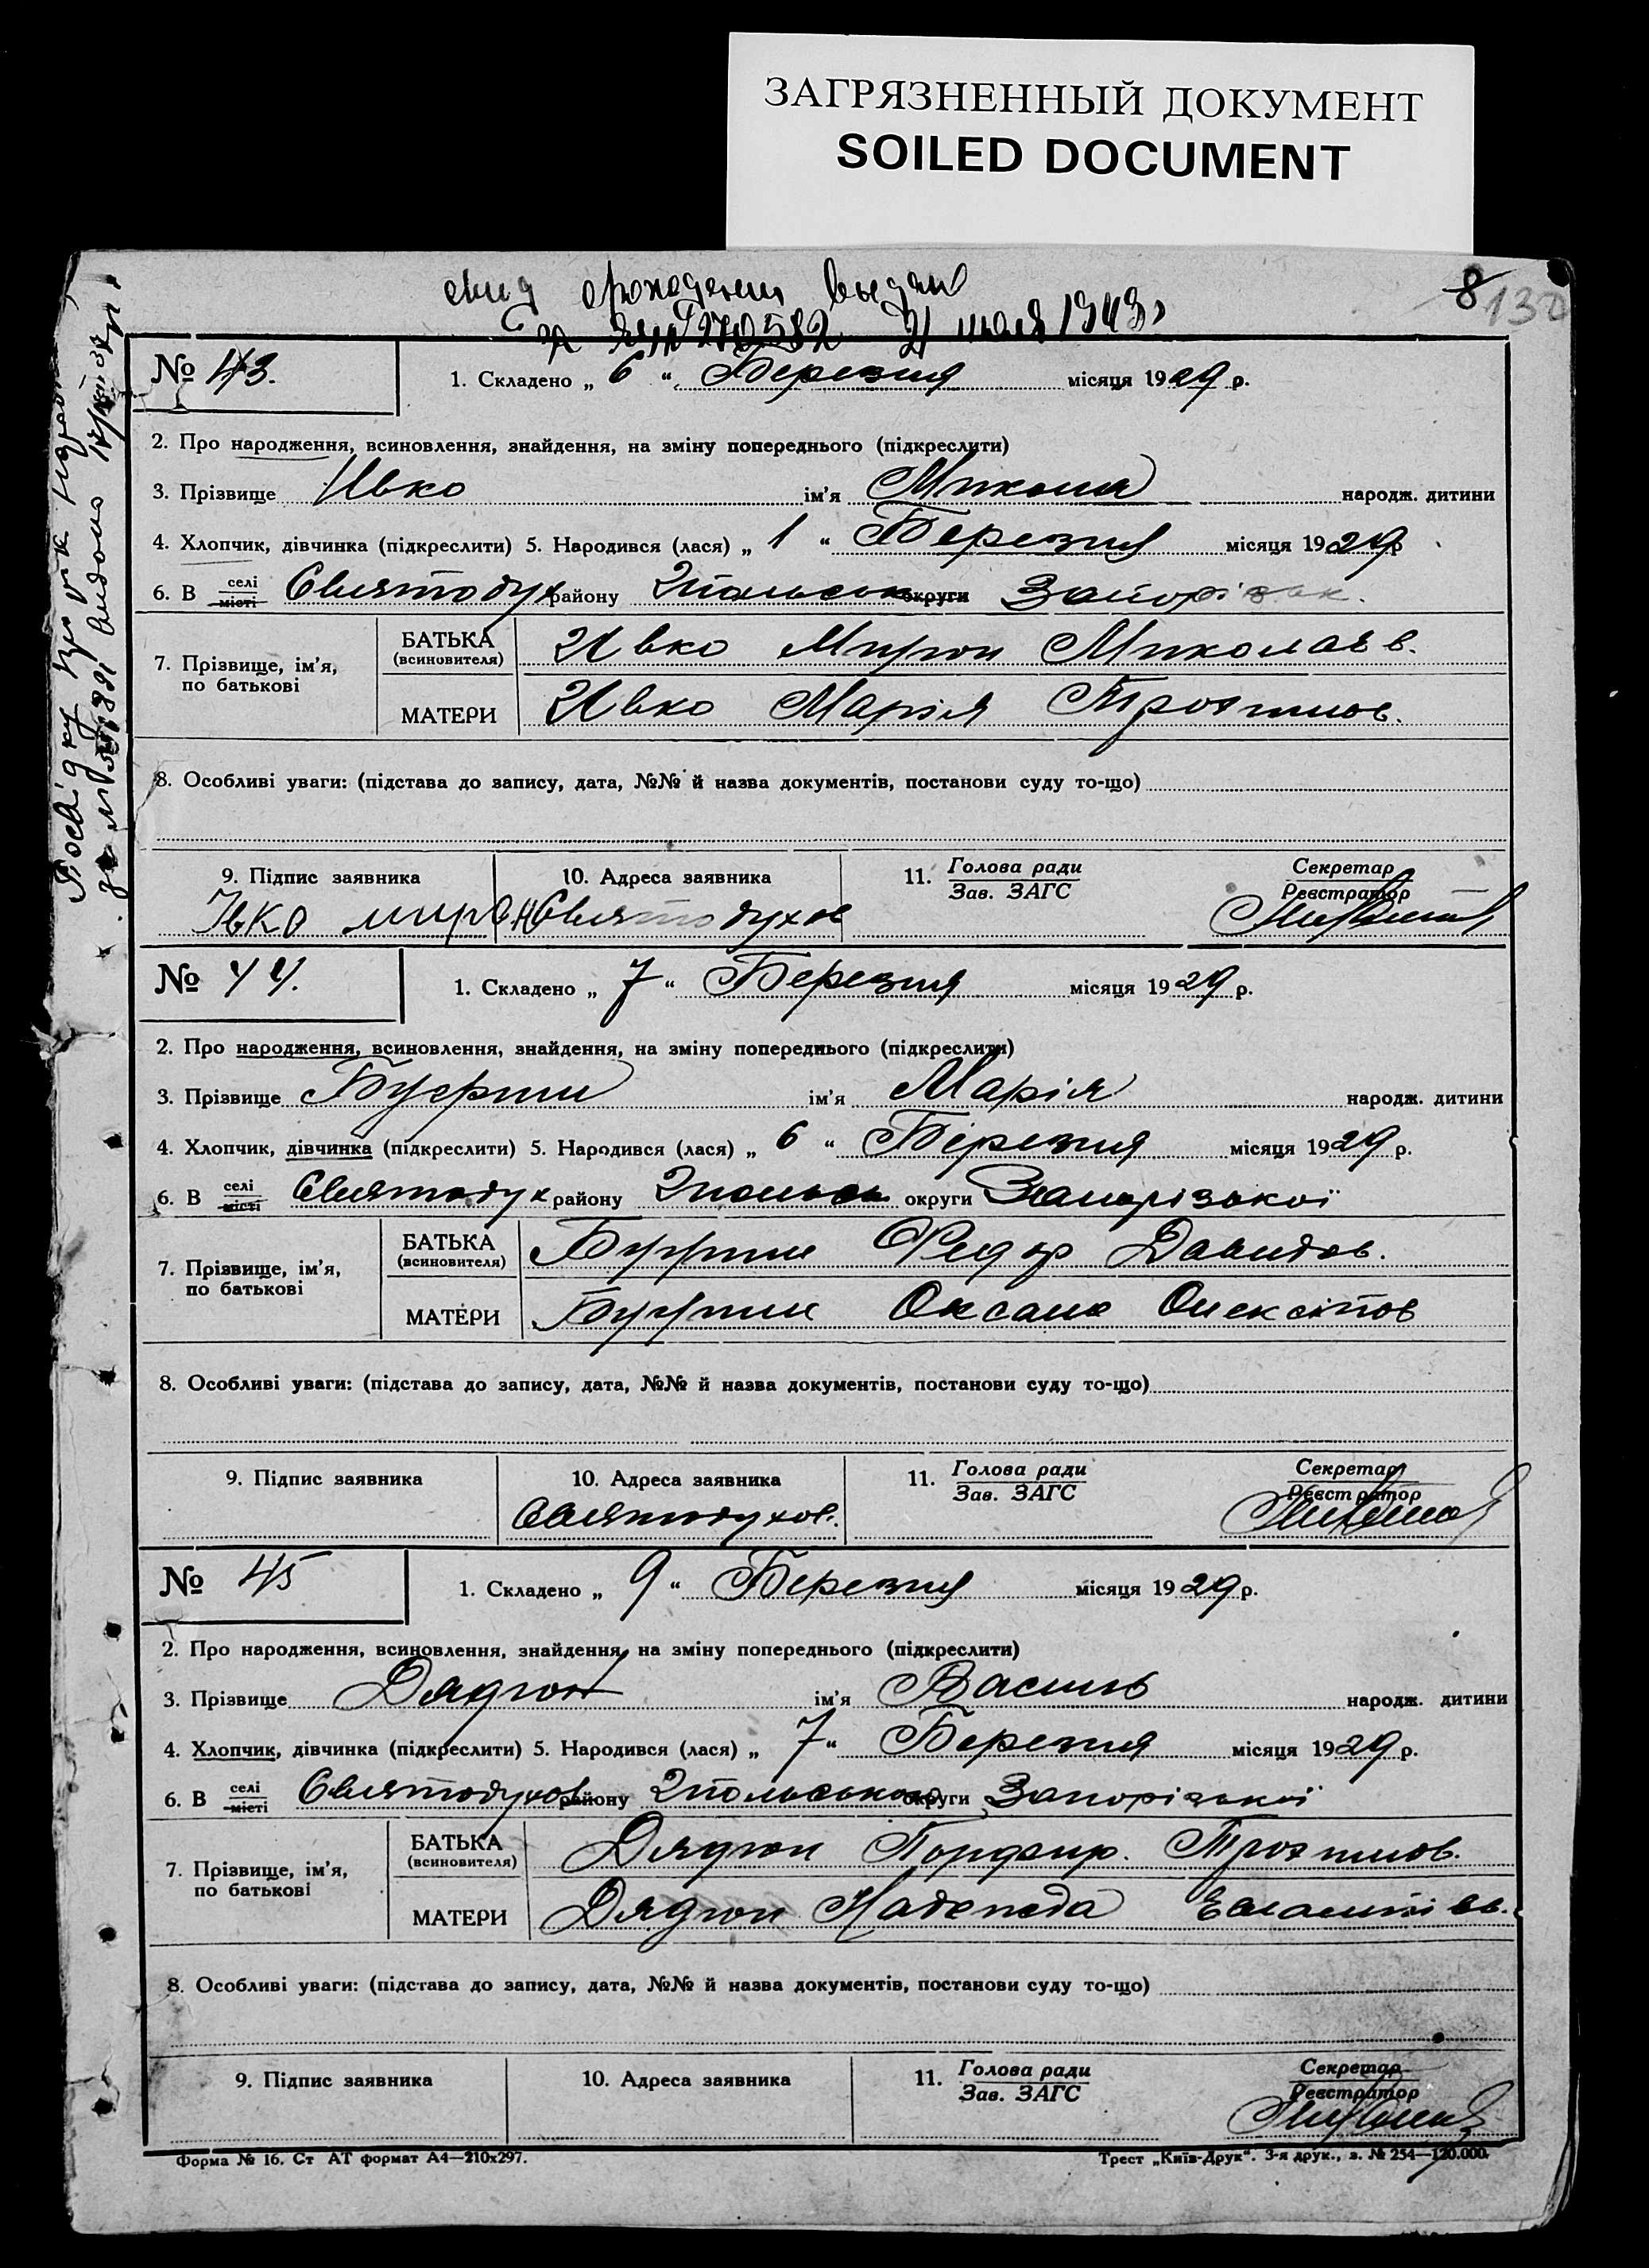 ЗАГРЯЗНЕННЫЙ ДОКУМЕНТ
SOILED DOCUMENT
8 130
21 июля 1943
№ 43. 1. Складено „ 6 “ Березня місяця 1929 р.
2. Про народження, всиновлення, знайдення, на зміну попереднього (підкреслити)
3. Прізвище Ивко ім’я Микола народж. дитини
4. Хлопчик, дівчинка (підкреслити) 5. Народився (лася) „ 1 “ Березня місяця 1929 р
6. В селі місті Святодух району округи Запорізьк.
7. Прізвище, ім’я, по батькові
БАТЬКА (всиновителя) Ивко Мирон Миколаєв.
МАТЕРИ Ивко Марія Трохимов.
8. Особливі уваги: (підстава до запису, дата, №№ й назва документів, постанови суду то-що)
9. Підпис заявника 10. Адреса заявника 11. Голова ради Зав. ЗАГС Секретар Реєстратор
Івко мирон Святодухов
№ 44. 1. Складено „ 7 “ Березня місяця 1929 р.
2. Про народження, всиновлення, знайдення, на зміну попереднього (підкреслити)
3. Прізвище ім’я Марія народж. дитини
4. Хлопчик, дівчинка (підкреслити) 5. Народився (лася) „ 6 “ Березня місяця 1929 р.
6. В селі місті Святодух району округи Запорізької
7. Прізвище, ім’я, по батькові
БАТЬКА (всиновителя) Федор Давидов.
МАТЕРИ Оксана
8. Особливі уваги: (підстава до запису, дата, №№ й назва документів, постанови суду то-що)
9. Підпис заявника 10. Адреса заявника 11. Голова ради Зав. ЗАГС Секретар Реєстратор
Святодухов.
№ 45 1. Складено „ 9 “ Березня місяця 1929 р.
2. Про народження, всиновлення, знайдення, на зміну попереднього (підкреслити)
3. Прізвище Дядюн ім’я Василь народж. дитини
4. Хлопчик, дівчинка (підкреслити) 5. Народився (лася) „ 7 “ Березня місяця 1929 р.
6. В селі місті Святодухов району округи Запорізької
7. Прізвище, ім’я, по батькові
БАТЬКА (всиновителя) Дядюн Порфир. Трохимов.
МАТЕРИ Дядюн Надежда
8. Особливі уваги: (підстава до запису, дата, №№ й назва документів, постанови суду то-що)
9. Підпис заявника 10. Адреса заявника 11. Голова ради Зав. ЗАГС Секретар Реєстратор
Форма № 16. Ст АТ формат А4—210х297. Трест „Київ-Друк“. 3-я друк., з. № 254—120.000.